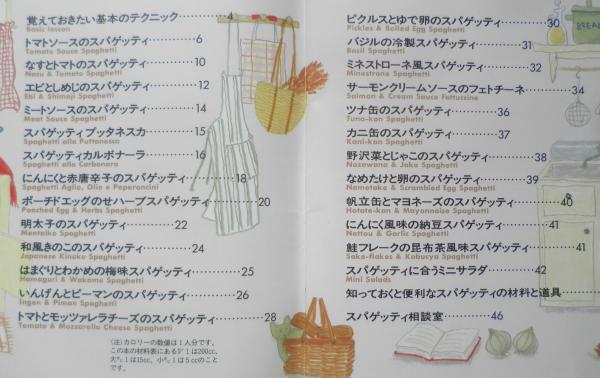 覚えておきたい基本のテクニック………4
Basic lesson
トマトソースのスパゲッティ…………6
Tomato Sauce Spaghetti
なすとトマトのスパゲッティ…………10
Nasu & Tomato Spaghetti
エビとしめじのスパゲッティ…………12
Ebi & Shimeji Spaghetti
ミートソースのスパゲッティ…………14
Meat Sauce Spaghetti
スパゲッティプッタネスカ……………15
Spaghetti alla Puttanesca
スパゲッティカルボナーラ……………16
Spaghetti alla Carbonara
にんにくと赤唐辛子のスパゲッティ……18
Spaghetti Aglio, Olio e Peperoncini
ポーチドエッグのせハーブスパゲッティ……20
Poached Egg & Herbs Spaghetti
明太子のスパゲッティ…………22
Mentaiko Spaghetti
和風きのこのスパゲッティ…………24
Japanese Kinoko Spaghetti
はまぐりとわかめの梅味スパゲッティ………25
Hamaguri & Wakame Spaghetti
いんげんとピーマンのスパゲッティ…………26
Ingen & Piman Spaghetti
トマトとモッツァレラチーズのスパゲッティ……28
Tomato & Mozzarella Cheese Spaghetti
(注)カロリーの数値は1人分です。
この本の材料表にあるカップ1は200cc、
大さじ1は15cc、小さじ1は5ccのこと
です。
ピクルスとゆで卵のスパゲッティ………30
Pickles & Boiled Egg Spaghetti
バジルの冷製スパゲッティ…………31
Basil Spaghetti
ミネストローネ風スパゲッティ…………32
Minestrone Spaghetti
サーモンクリームソースのフェトチーネ……34
Salmon & Cream Sauce Fettuccine
ツナ缶のスパゲッティ…………36
Tuna-kan Spaghetti
カニ缶のスパゲッティ…………37
Kani-kan Spaghetti
野沢菜とじゃこのスパゲッティ………38
Nozawana & Jako Spaghetti
なめたけと卵のスパゲッティ…………39
Nametake & Scrambled Egg Spaghetti
帆立缶とマヨネーズのスパゲッティ………40
Hotate-kan & Mayonnaise Spaghetti
にんにく風味の納豆スパゲッティ………41
Nattou & Garlic Spaghetti
鮭フレークの昆布茶風味スパゲッティ……41
Sake-flakes & Kobucya Spaghetti
スパゲッティに合うミニサラダ………42
Mini Salads
知っておくと便利なスパゲッティの材料と道具
スパゲッティ相談室…………46
BREAD